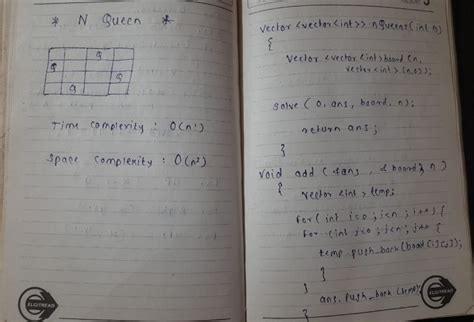 * N Queen *
Q
Q
Q
Q
Time complexity : O(n!)
Space complexity : O(n²)
ELGITREAD
vector <vector <int>> nQueens (int n)
{
vector <vector <int> board (n,
vector <int> (n,0));
solve ( 0, ans, board, n);
return ans ;
}
void add ( &ans , & board, n )
{
vector <int> temp;
for( int i=0 ; i<n ; i++) {
for (int j=0 ; j<n ; j++ {
temp. push_back (board [i][j]);
}
}
ans. push_back (temp);
}
ELGITREAD